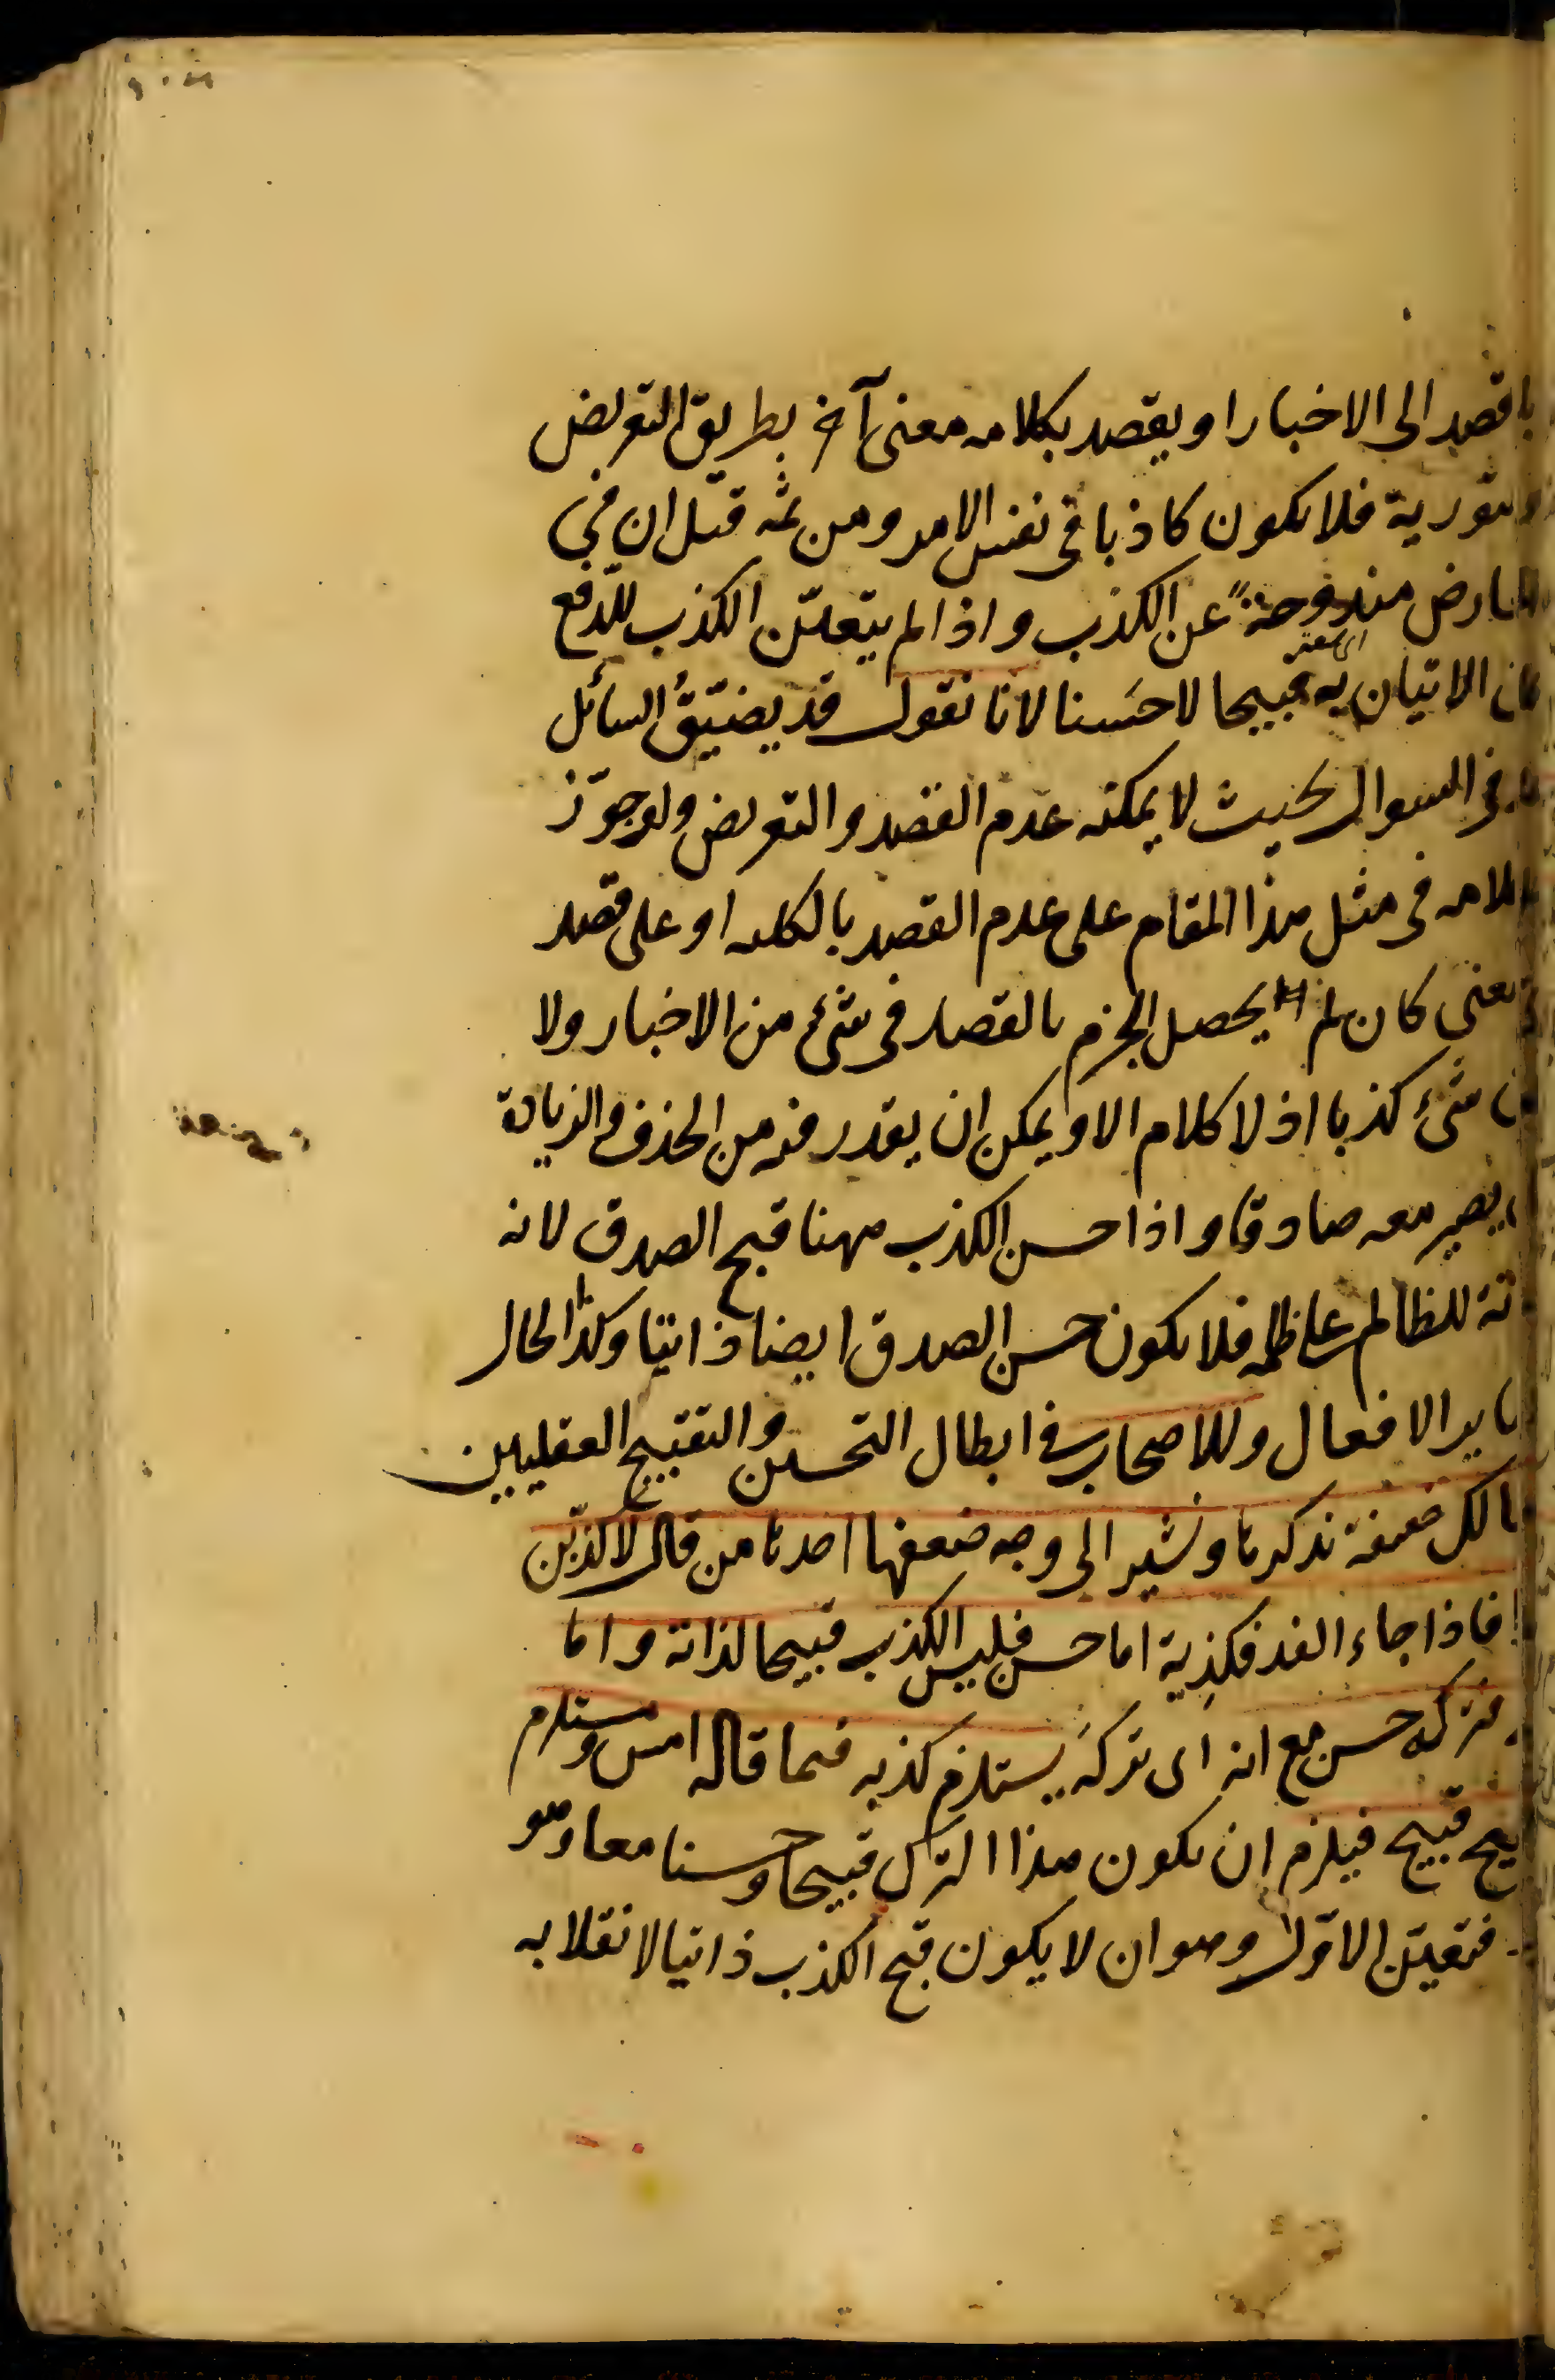 قصد الى الاخبار او يقصد بكلامه معنى آخر بطريق التعريض
والتورية فلا يكون كاذبا في نفس الامر ومن ثمه قيل ان في
المعارض مندوحة عن الكذب واذا لم يتعين الكذب للدفع
كان الاتيان به قبيحا لا حسنا لانا نقول قد يضيق السائل
في السوال بحيث لا يمكنه عدم القصد والتعريض ولو جوز
كلامه في مثل هذا المقام على عدم القصد بالكليه او على قصد
معنى كان لم يحصل الجزم بالقصد في شئ من الاخبار ولا
شئ كذبا اذ لا كلام الا ويمكن ان يقدر فيه من الحذف والزيادة
يصير معه صادقا واذا حسن الكذب ههنا قبح الصدق لانه
للظالم على ظلمه فلا يكون حسن الصدق ايضا ذاتيا وكذا الحال
ساير الافعال وللاصحاب في ابطال التحسين والتقبيح العقليين
مسالك ضعيفة نذكرها ونشير الى وجه ضعفها احدها من قال لاكذبن
فاذا جاء الغد فكذبه اما حسن فليس الكذب قبيحا لذاته واما
فتركه حسن مع انه اى تركه يستلزم كذبه فيما قاله امس ومستلزم
قبيح فيلزم ان يكون هذا الترك قبيحا وحسنا معا وهو
فتعين الاول وهو ان لا يكون قبح الكذب ذاتيا لانقلابه